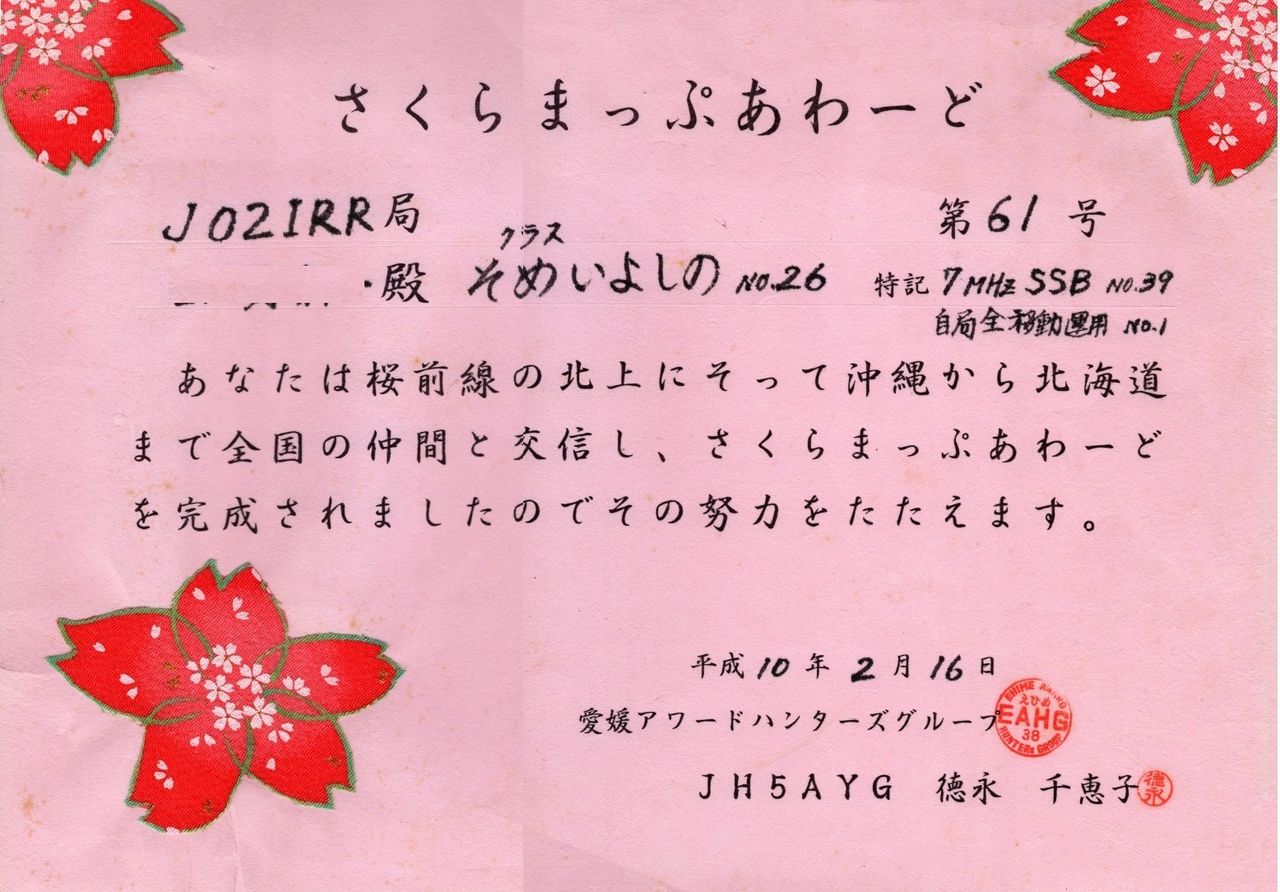 さくらまっぷあわーど
JO2IRR局
第61号
クラス
殿 そめいよしの NO.26 特記 7MHz SSB NO.39
自局全移動運用 NO.1
あなたは桜前線の北上にそって沖縄から北海道
まで全国の仲間と交信し、さくらまっぷあわーど
を完成されましたのでその努力をたたえます。
平成10年2月16日
愛媛アワードハンターズグループ
EHIME AWARD
えひめ
EAHG
38
HUNTERs GROUP
JH5AYG 徳永 千恵子
徳永